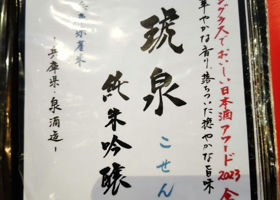 ングラスでおいしい日本酒アワード2023 金
華やかな香り、落ちついた穏やかな旨味
琥泉
こせん
純米吟醸
-兵庫県・泉酒造-